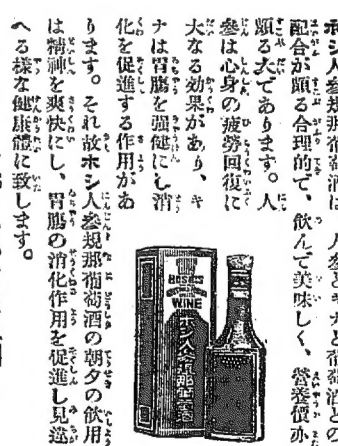 ホシ人參規那葡萄酒は人參とキナと葡萄酒との
配合が頗る合理的で、飲んで美味しく、營養價亦
頗る大であります。人
參は心身の疲勞回復に
大なる効果があり、キ
ナは胃腸を強健にし消
化を促進する作用があ
ります。それ故ホシ人參規那葡萄酒の朝夕の飲用
は精神を爽快にし、胃腸の消化作用を促進し見違
へる樣な健康體に致します。
HOSHI'S
WINE
ホシ人參規那葡萄酒